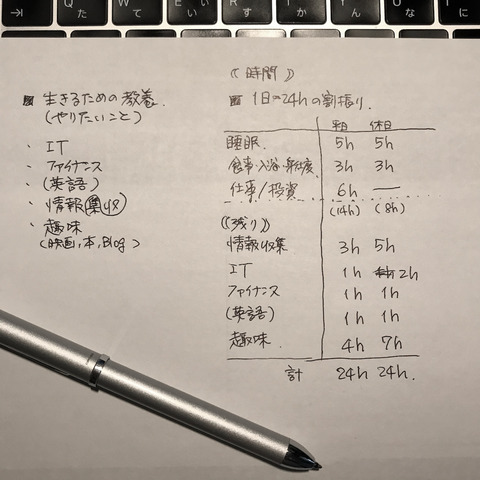 Q W E R T Y U
た て い い す か ん な に
■ 生きるための教養.
(やりたいこと)
・ IT
・ ファイナンス
・ (英語)
・ 情報集収
・ 趣味
(映画,本,Blog)
《 時間 》
■ 1日24hの割振り.
平日 休日
睡眠. 5h 5h
食事・入浴・身仕度 3h 3h
仕事/投資 6h —
(14h) (8h)
《残り》
情報収集 3h 5h
IT 1h 2h
ファイナンス 1h 1h
(英語) 1h 1h
趣味. 4h 7h
計 24h 24h.